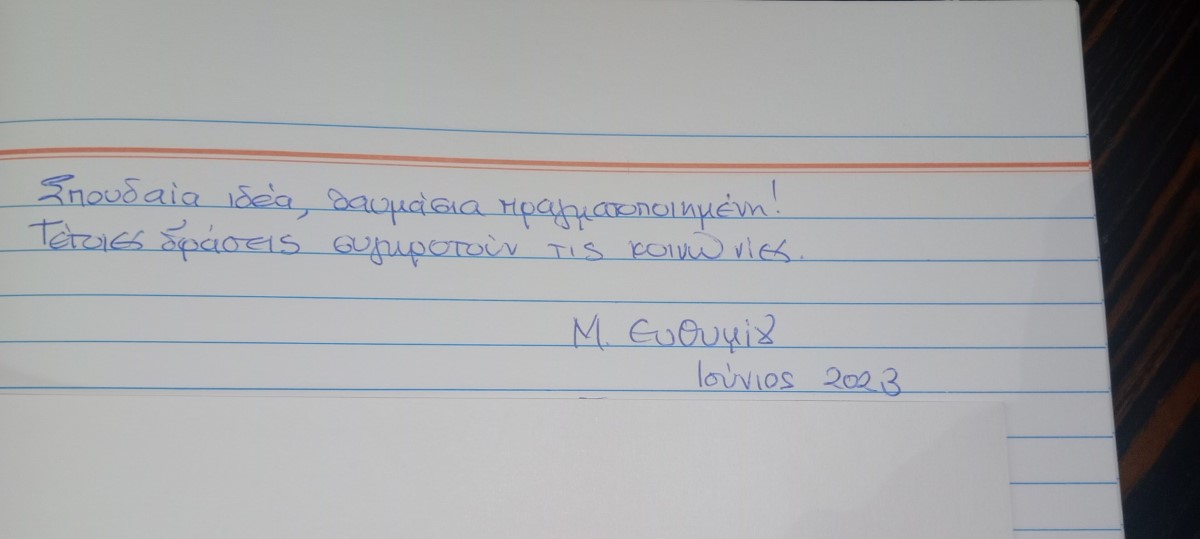 Σπουδαία ιδέα, θαυμάσια πραγματοποιημένη!
Τέτοιες δράσεις συγκροτούν τις κοινωνίες.
Μ. Ευθυμίου
Ιούνιος 2023